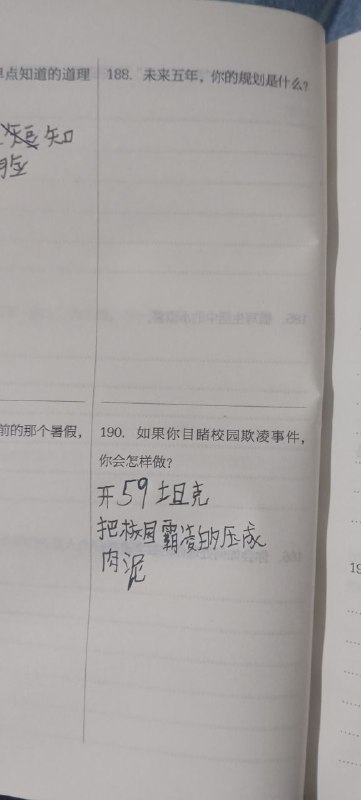 点知道的道理
知
脸
188. 未来五年，你的规划是什么？
前的那个暑假，
190. 如果你目睹校园欺凌事件，
你会怎样做？
开59坦克
把校园霸凌的压成
肉泥